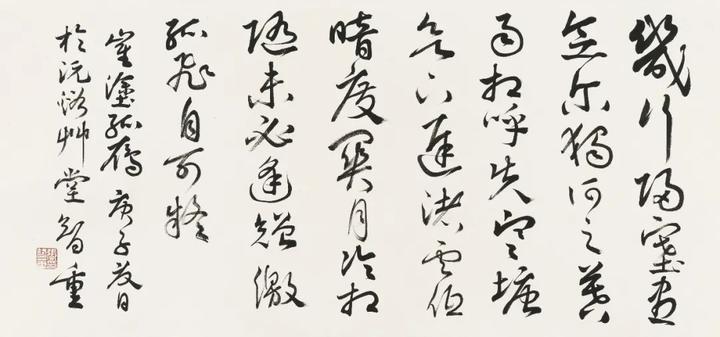 幾行歸塞盡
念尔獨何之暮
雨相呼失寒塘
欲下遲渚雲低
暗度關月冷相
隨未必逢矰繳
孤飛自可疑
崔塗孤雁 庚子夏日
於沅 艸堂 智重